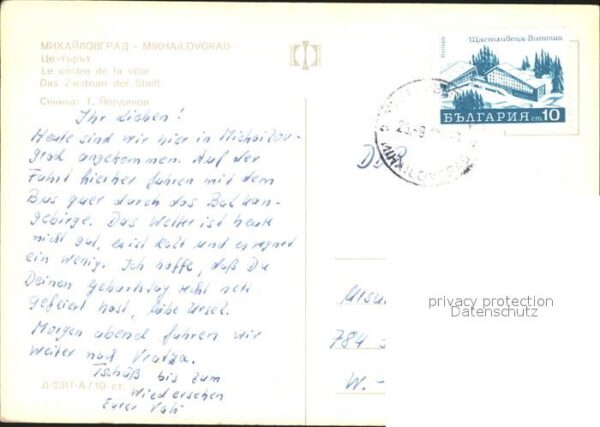 МИХАЙЛОВГРАД - MIKHAILOVGRAD
Центърът
Le centre de la ville
Das Zentrum der Stadt
Снимка: Т. Йорданов
Ihr Lieben!
Heute sind wir hier in Michailov-
grad angekommen. Auf der
Fahrt hierher fuhren mit dem
Bus quer durch das Balkan-
gebirge. Das Wetter ist heute
nicht gut, es ist kalt und es regnet
ein wenig. Ich hoffe, daß Du
Deinen Geburtstag recht nett
gefeiert hast, liebe Ursel.
Morgen abend fahren wir
weiter nach Vratza.
Tschüß bis zum
Wiedersehen
Eurer Vati
Д-2311-А/10 ст.
поща
Щастливеца-Витоша
БЪЛГАРИЯ ст 10
MIKHAILOVGRAD
D.B.R.
Ursu
784
W. -
privacy protection
Datenschutz